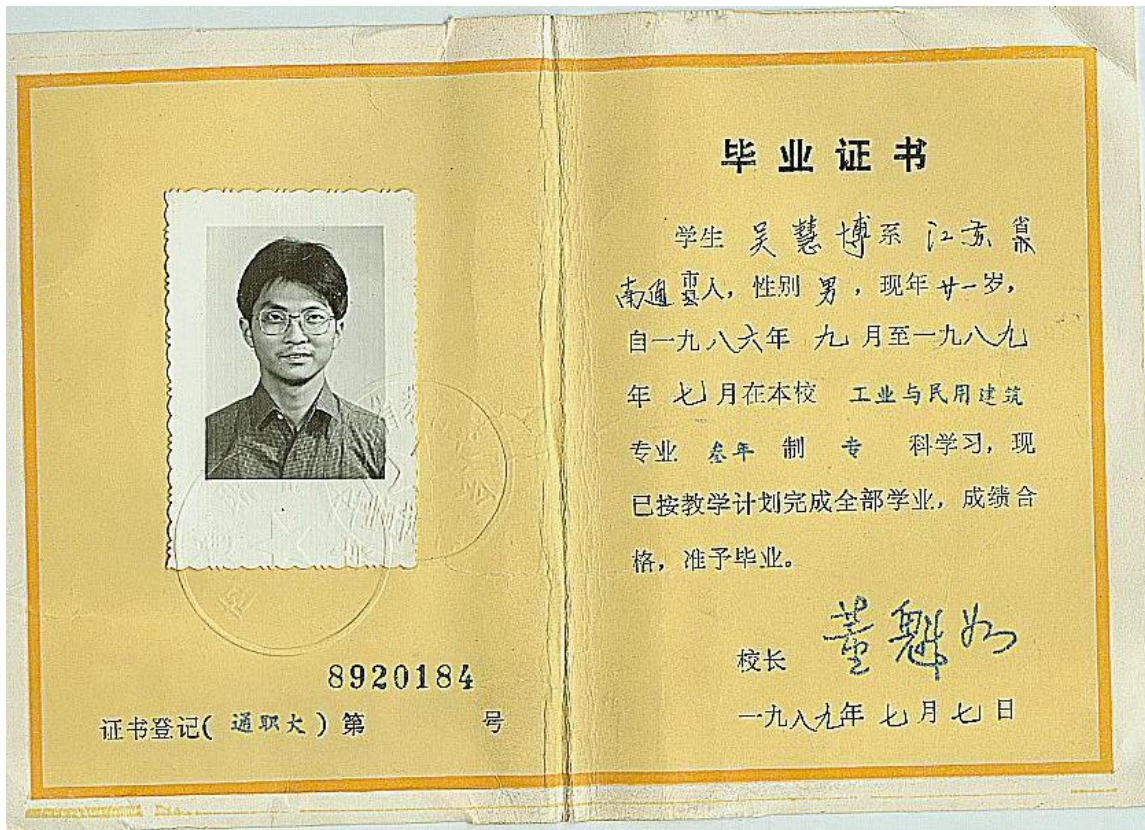 8920184
证书登记(通职大)第 号
毕业证书
学生 吴慧博系 江苏省
南通市县人，性别男，现年廿一岁，
自一九八六年九月至一九八九
年七月在本校 工业与民用建筑
专业 叁年 制 专 科学习，现
已按教学计划完成全部学业，成绩合
格，准予毕业。
校长 董魁如
一九八九年七月七日